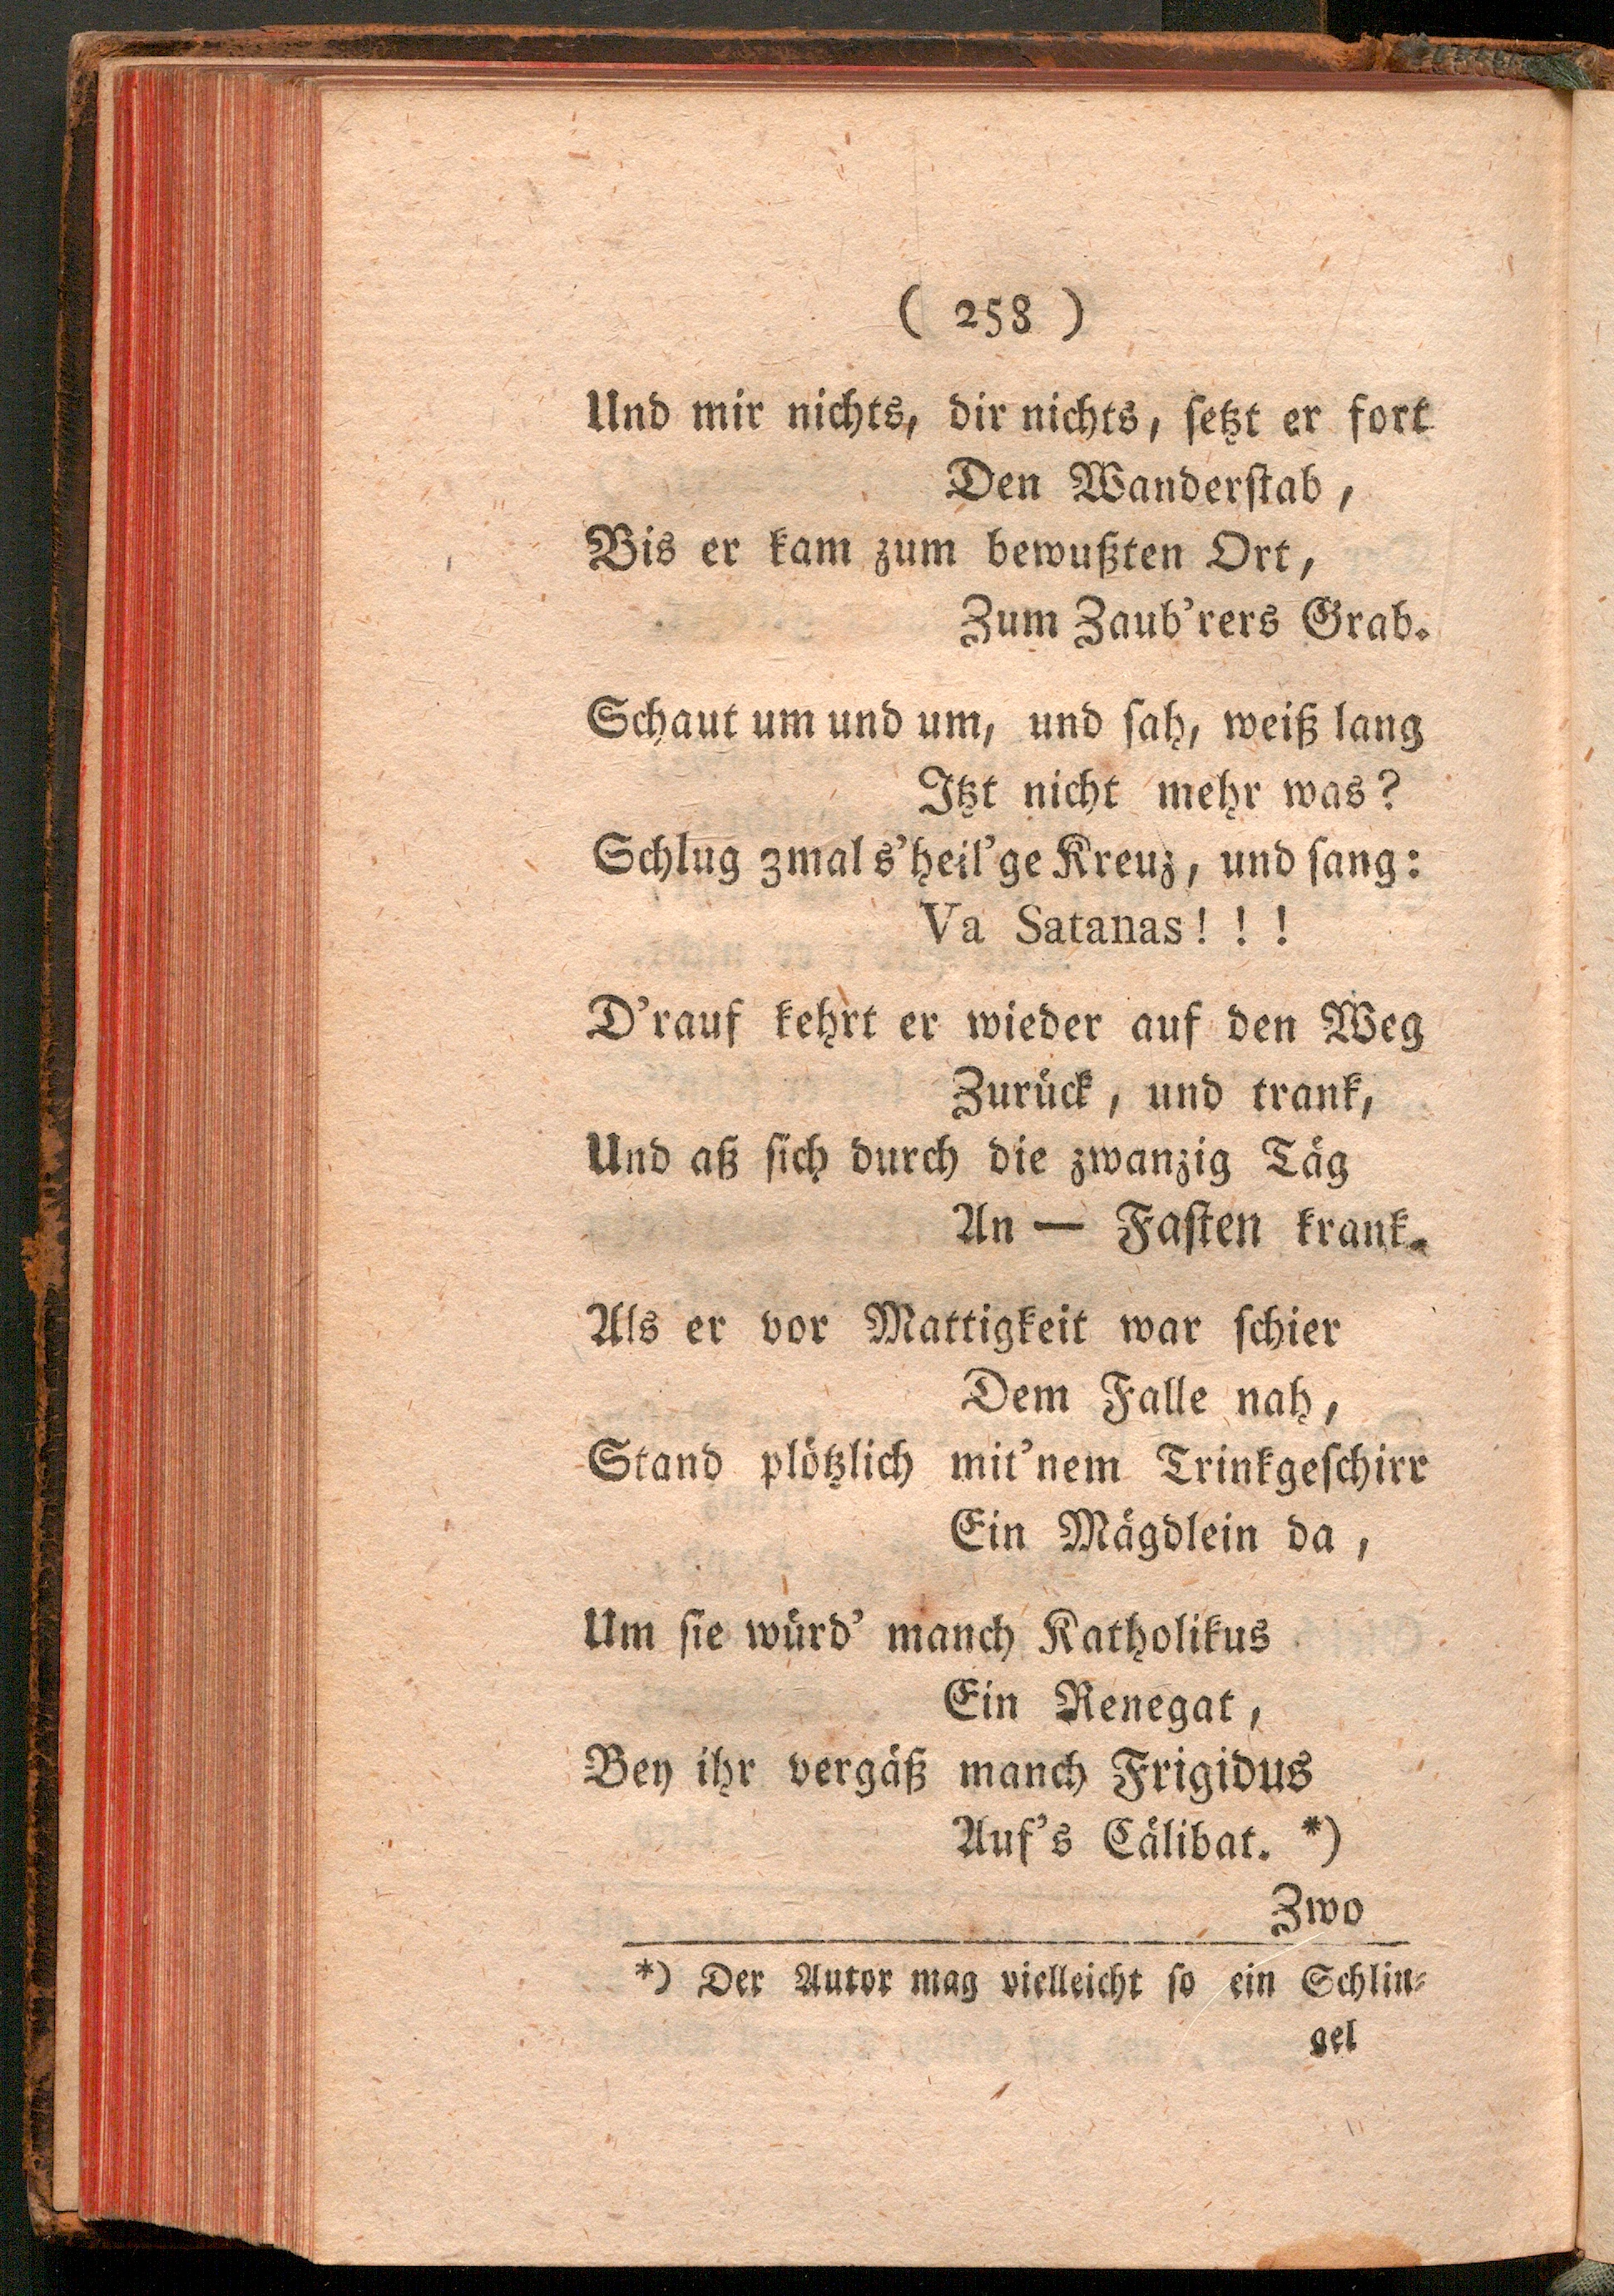 ( 258 )
Und mir nichts, dir nichts, ſetzt er fort
Den Wanderſtab,
Bis er kam zum bewußten Ort,
Zum Zaub'rers Grab.
Schaut um und um, und ſah, weiß lang
Itzt nicht mehr was?
Schlug 3mal s'heil'ge Kreuz, und ſang:
Va Satanas! ! !
D'rauf kehrt er wieder auf den Weg
Zurück, und trank,
Und aß ſich durch die zwanzig Täg
An — Faſten krank.
Als er vor Mattigkeit war ſchier
Dem Falle nah,
Stand plötzlich mit'nem Trinkgeſchirr
Ein Mägdlein da,
Um ſie würd' manch Katholikus
Ein Renegat,
Bey ihr vergäß manch Frigidus
Auf's Cälibat. *)
Zwo
*) Der Autor mag vielleicht ſo ein Schlin⸗
gel